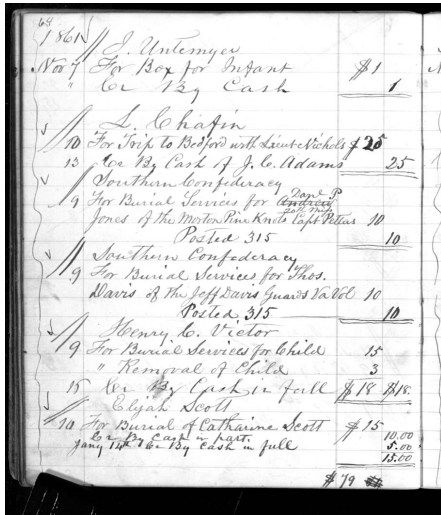 64
1861
J. Untemyer
Nov 7 For Box for Infant $1
" Cr By Cash 1
L. Chafin
10 For Trip to Bedford with Lieut Nichols $25
13 Cr By Cash of J. C. Adams 25
Southern Confederacy
9 For Burial Services for Andrew Danl P.
Jones of the Morton Pine Knots Capt Pettus 10
Posted 315 10
Southern Confederacy
9 For Burial Services for Thos.
Davis of the Jeff Davis Guards Va Vol 10
Posted 315 10
Henry C. Victor
9 For Burial Services for Child 15
" Removal of Child 3
15 Cr By Cash in full $18 $18
Elijah Scott
10 For Burial of Catharine Scott $15
Cr By Cash in part. 10.00
Jany 14th Cr By Cash in full 5.00
15.00
$79